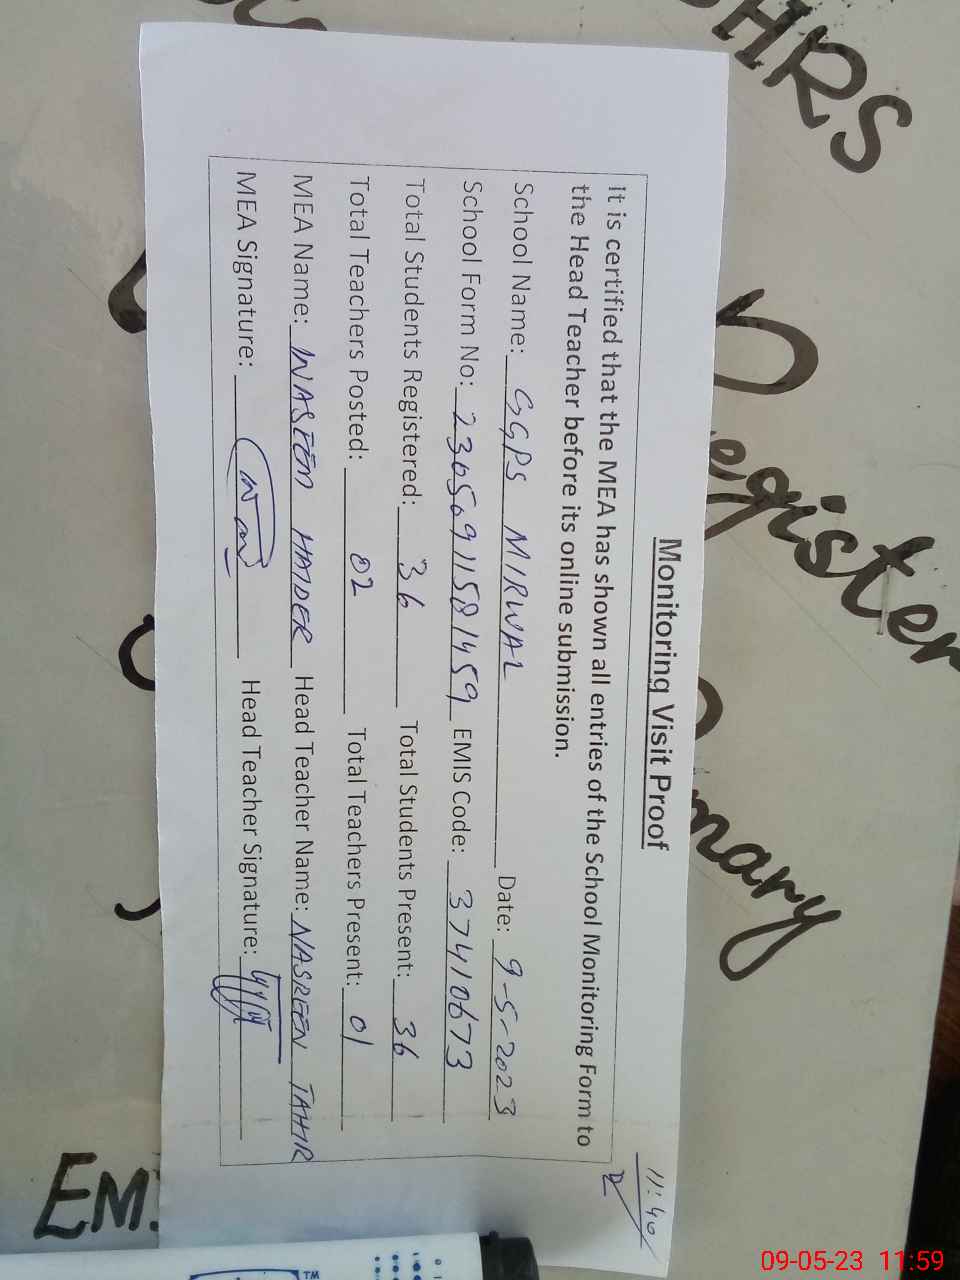 HRS
Register
Monitoring Visit Proof
11:40
It is certified that the MEA has shown all entries of the School Monitoring Form to
the Head Teacher before its online submission.
School Name: GGPS MIRWAL Date: 9-5-2023
School Form No: 23056911581459 EMIS Code: 37410673
Total Students Registered: 36 Total Students Present: 36
Total Teachers Posted: 02 Total Teachers Present: 01
MEA Name: WASEEM HAIDER Head Teacher Name: NASREEN TAHIR
MEA Signature: Head Teacher Signature:
EM
TM
09-05-23 11:59